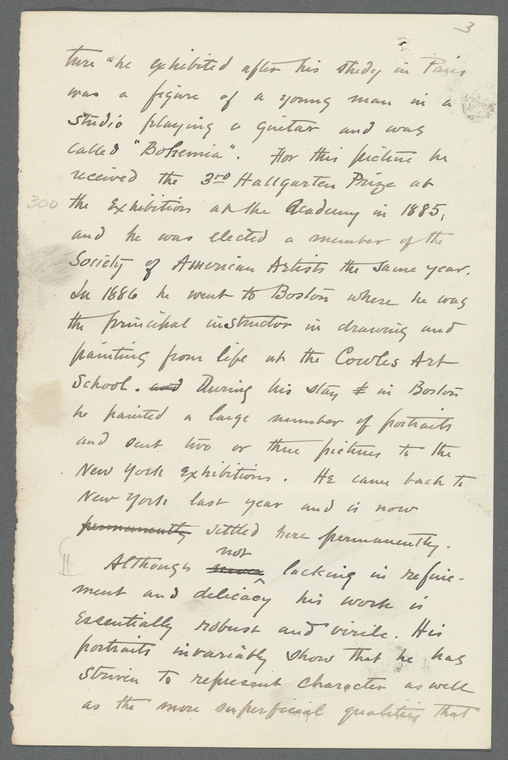 3
ture he exhibited after his study in Paris
was a figure of a young man in a
studio playing a guitar and was
called "Bohemia". For this picture he
received the 3rd Hallgarten Prize at
300 the Exhibition at the Academy in 1885,
and he was elected a member of the
Society of American Artists the same year.
In 1886 he went to Boston where he was
the principal instructor in drawing and
painting from life at the Cowles Art
School. and During his stay in Boston
he painted a large number of portraits
and sent two or three pictures to the
New York Exhibitions. He came back to
New York last year and is now
permanently settled here permanently.
Although not lacking in refine-
ment and delicacy his work is
essentially robust and virile. His
portraits invariably show that he has
striven to represent character as well
as the more superficial qualities that